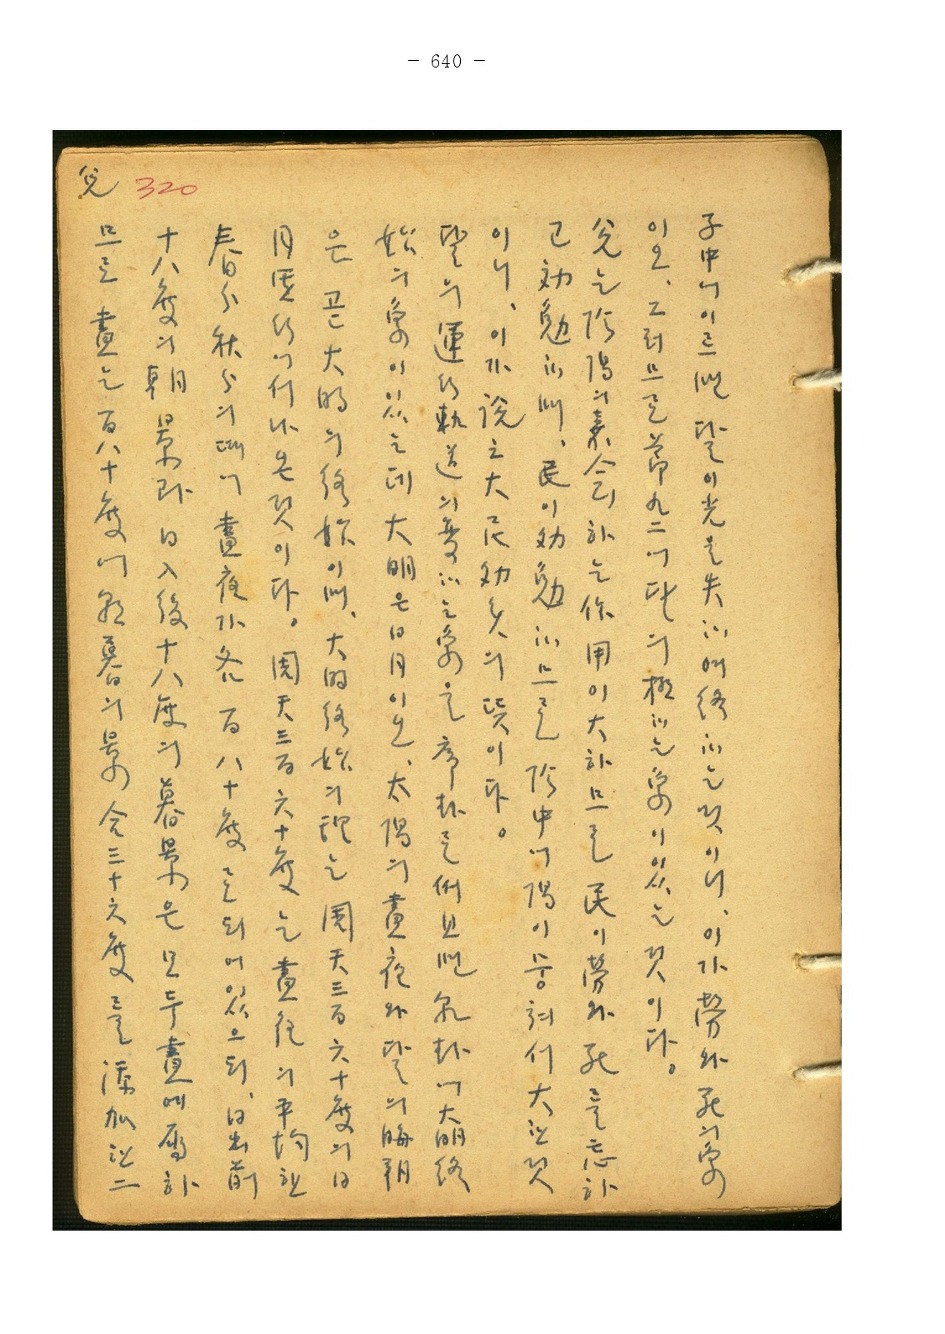 - 640 -
兌 320
子中에 이르매 달이 光을 失하여 終하는 것이니, 이가 勞와 死의 象
이오, 그러므로 節九二에 달의 極하는 象이 있는 것이다.
兌는 陰陽의 素合하는 作用이 大하므로 民이 勞와 死를 忘하
고 効勉하며, 民이 効勉하므로 陰中에 陽이 뭉쳐서 大한 것
이니, 이가 說之大民効矣의 뜻이다.
달의 運行軌道의 變하는 象을 序卦로 例보면 乾卦에 大明終
始의 象이 있는데 大明은 日月이오, 太陽의 晝夜와 달의 晦朝
은 곧 大明의 終始이며, 大明終始의 理는 周天三百六十度의 日
月運行에서 나온 것이다. 周天三百六十度는 晝夜의 平均한
春分秋分의 때에 晝夜가 各 百八十度로 되어 있으되, 日出前
十八度의 朝景과 日入後十八度의 暮景은 모두 晝에 屬하
므로 晝는 百八十度에 朝暮의 景 合三十六度를 添加한 二